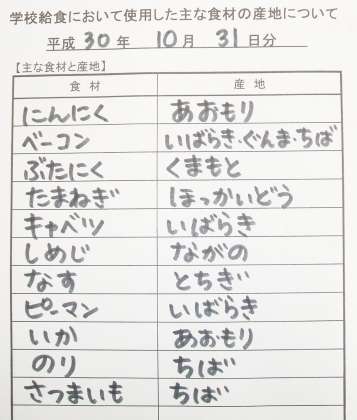 学校給食において使用した主な食材の産地について
平成 30 年 10 月 31 日分
【主な食材と産地】
食 材 産 地
にんにく あおもり
ベーコン いばらき・ぐんま・ちば
ぶたにく くまもと
たまねぎ ほっかいどう
キャベツ いばらき
しめじ ながの
なす とちぎ
ピーマン いばらき
いか あおもり
のり ちば
さつまいも ちば